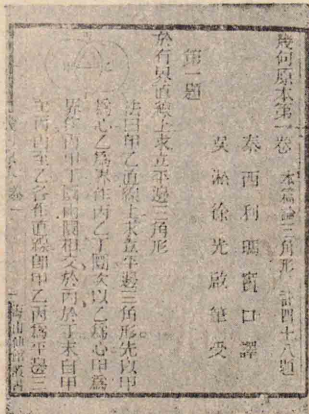 幾何原本第一卷 本篇論三角形 計四十八題
泰西利瑪竇口譯
吳淞徐光啟筆受
第一題
於有界直線上求立平邊三角形
法曰甲乙直線上求立平邊三角形先以甲
為心乙為界作丙乙丁圜次以乙為心甲為
界作丙甲丁圜兩圜相交於丙於丁末自甲
至丙丙至乙各作直線即甲乙丙為平邊三
海山仙館叢書